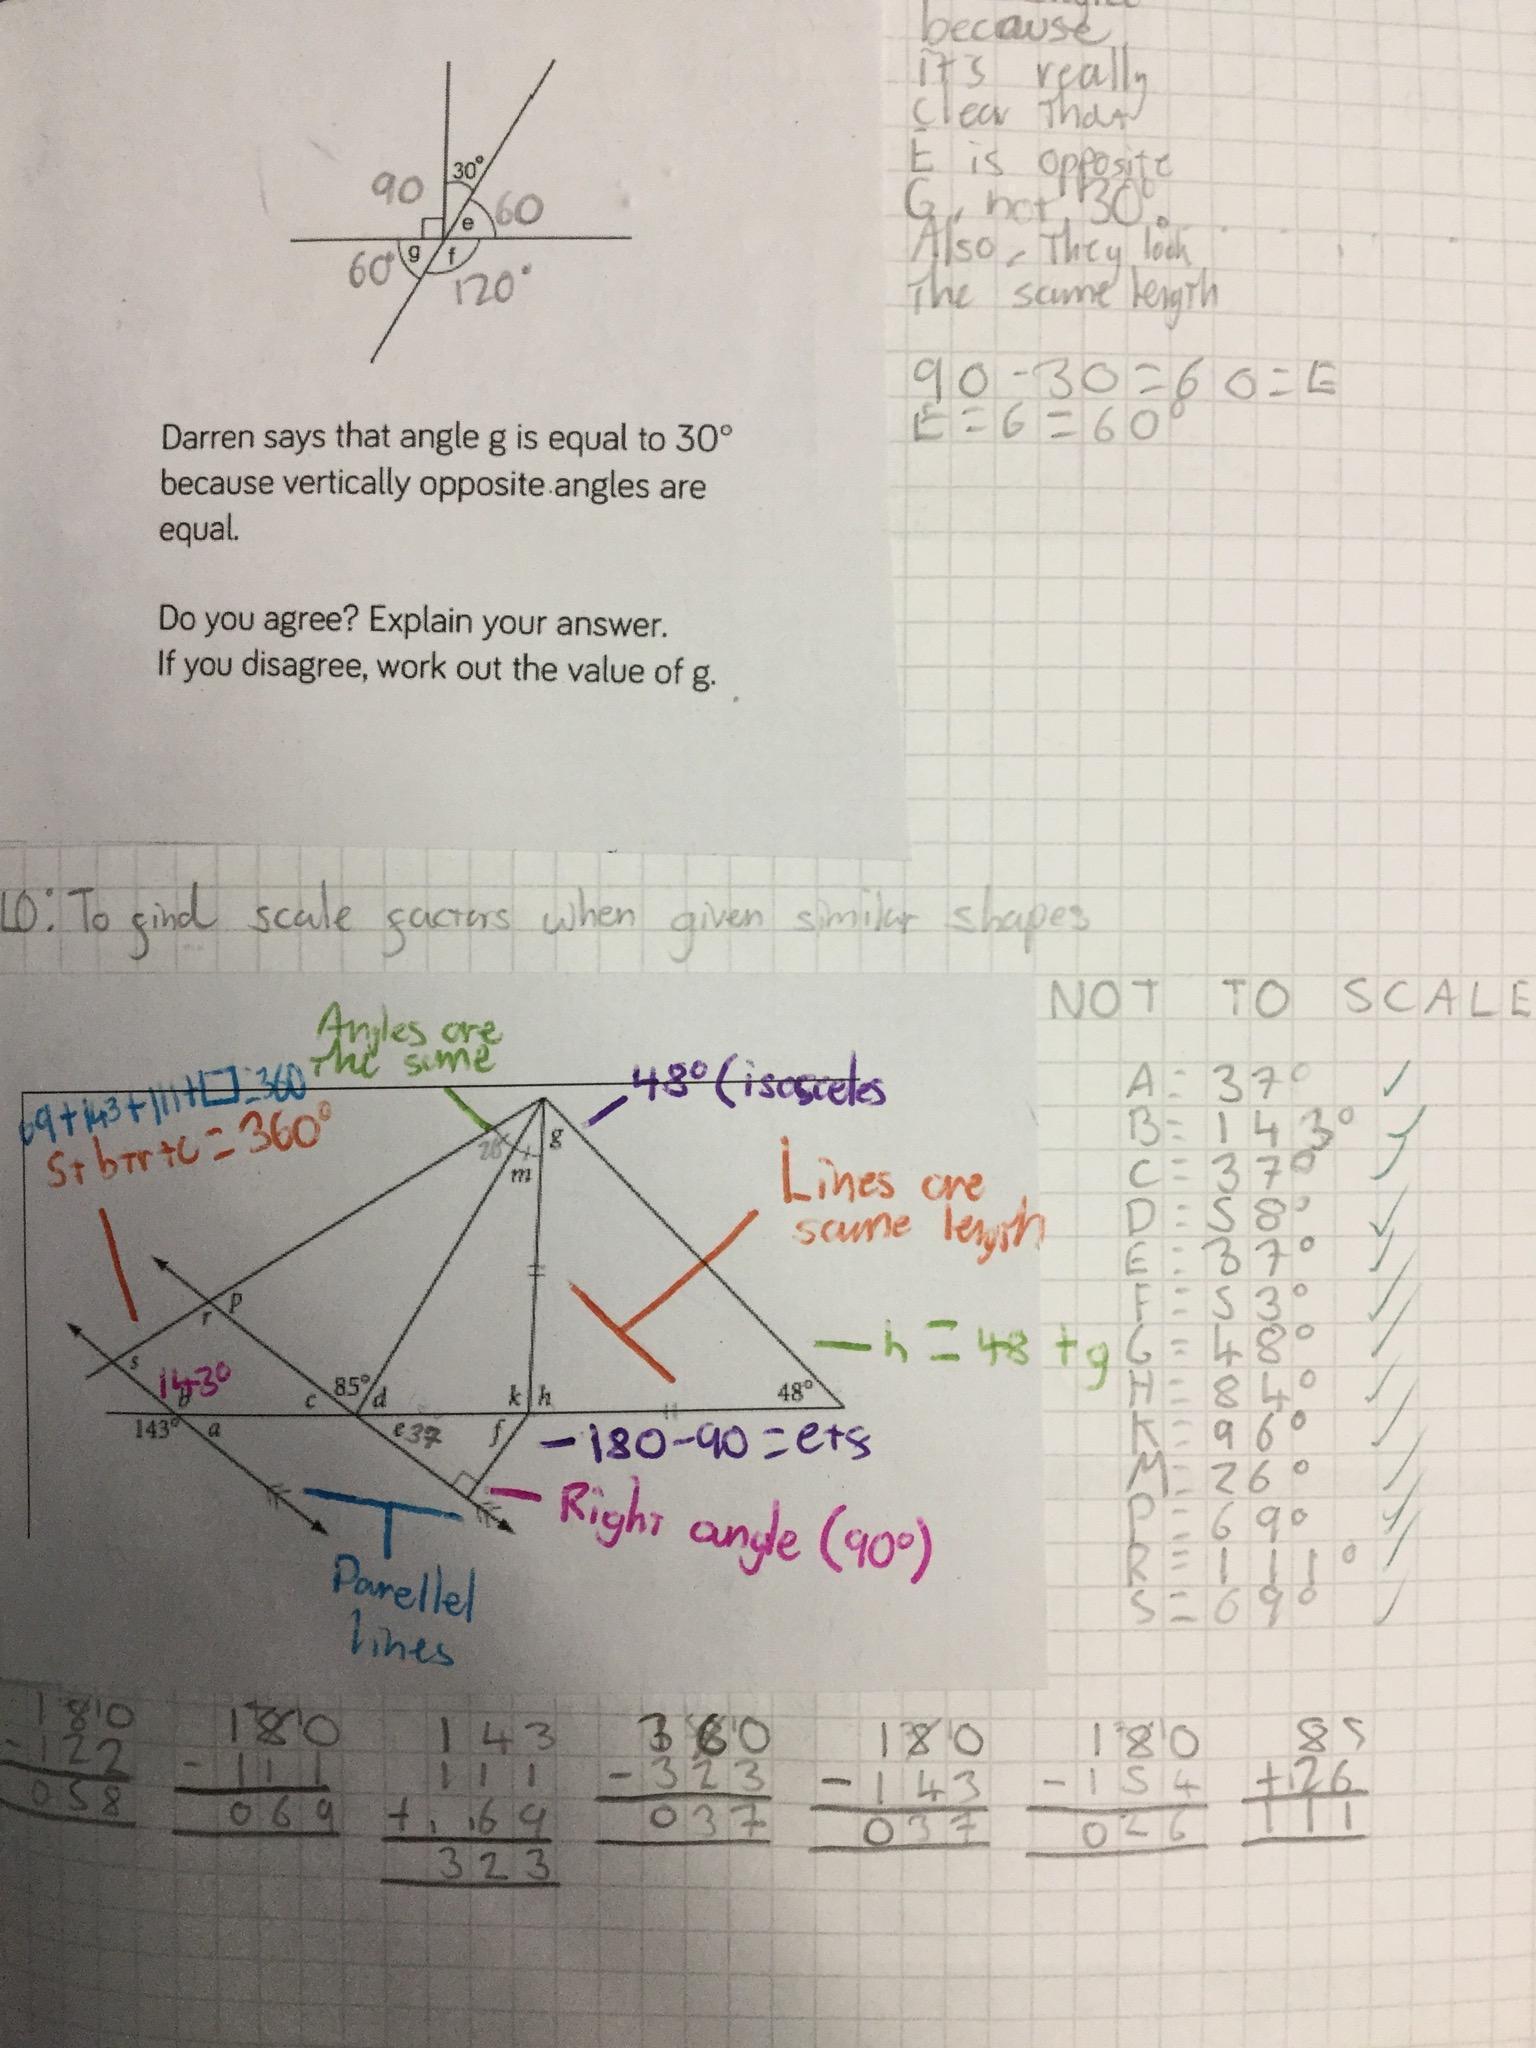 because
it's really
clear that
E is opposite
G, not 30°.
Also, They look
The same length
90 - 30 = 60 = E
E = G = 60°
90
30°
60
e
g
f
60°
120°
Darren says that angle g is equal to 30°
because vertically opposite angles are
equal.
Do you agree? Explain your answer.
If you disagree, work out the value of g.
LO: To find scale factors when given similar shapes
NOT TO SCALE
Angles are
The same
69+143+111+□=360
S+b+r+c = 360°
48° (isosceles
26
g
m
Lines are
same length
r
p
s
143°
b
c
85°
d
k
h
48°
h = 48 + g
143°
a
e
37
f
-180-90 = e+f
Right angle (90°)
Parellel
lines
A = 37° ✓
B = 143° ✓
C = 37° ✓
D = 58° ✓
E = 37° ✓
F = 53° ✓
G = 48° ✓
H = 84° ✓
K = 96° ✓
M = 26° ✓
P = 69° ✓
R = 111° ✓
S = 69° ✓
180
-122
058
180
-111
069
143
111
+169
323
360
-323
037
180
-143
037
180
-154
026
85
+26
111